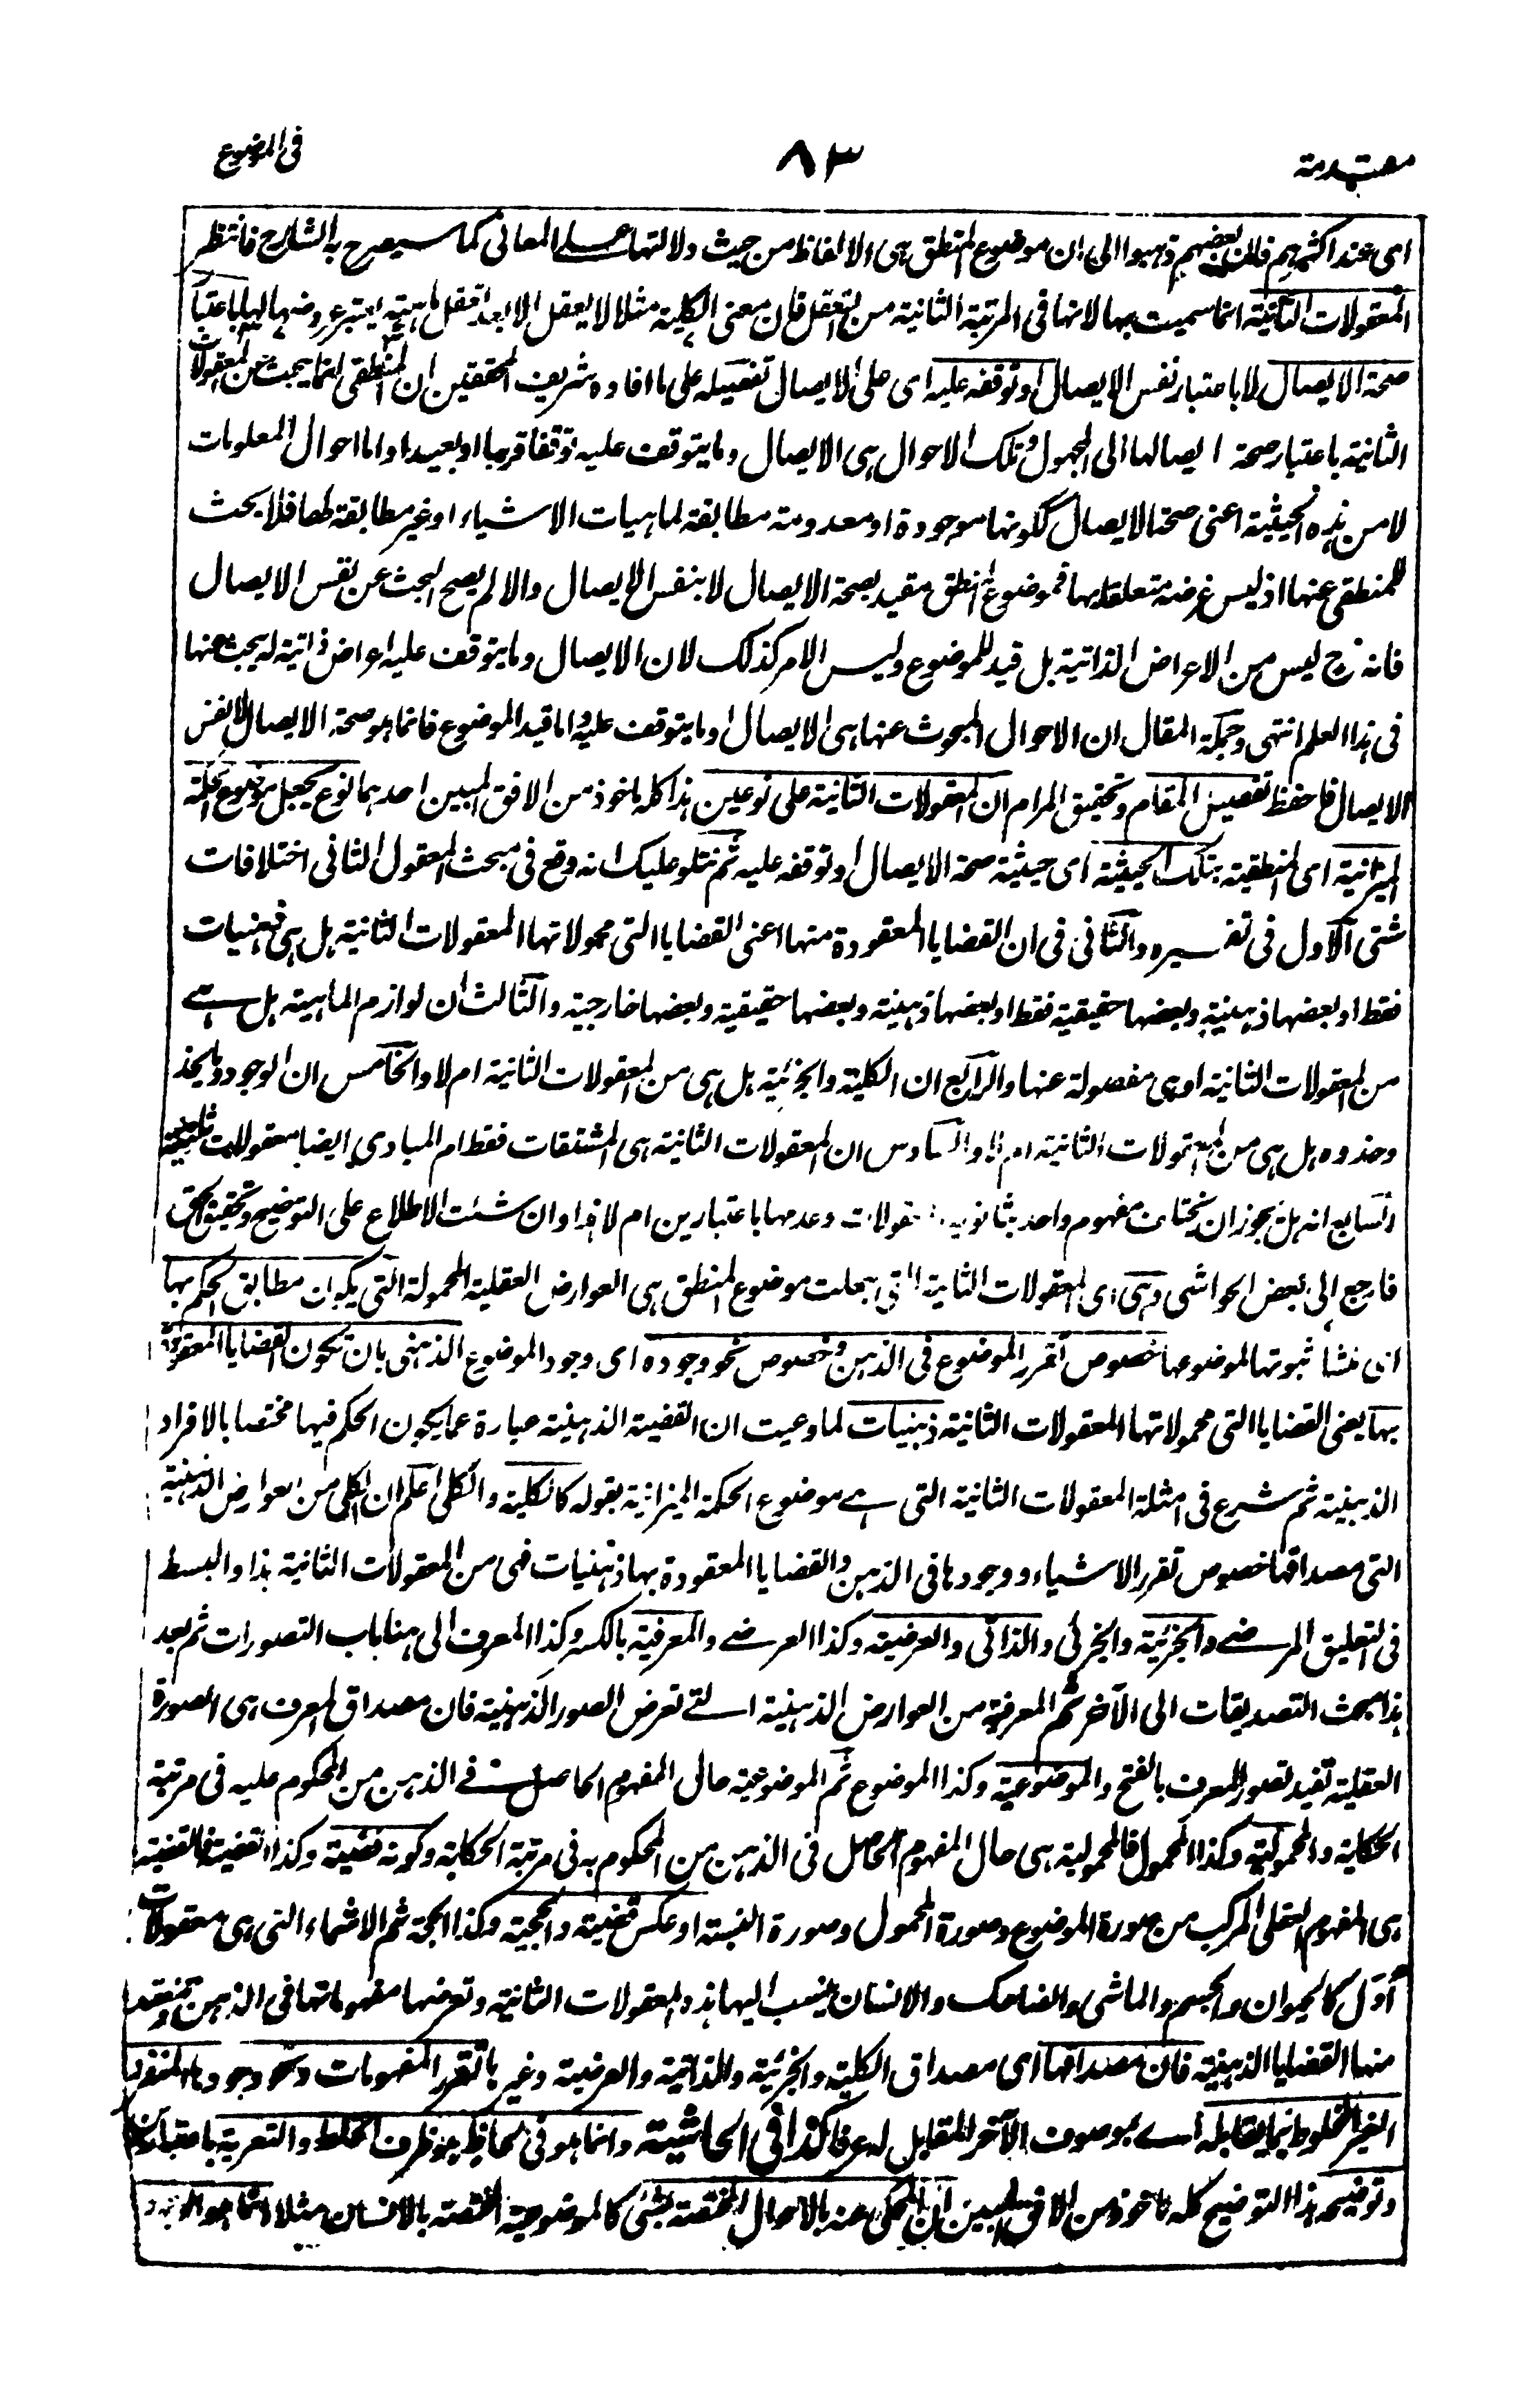 مقدمة ٨٣ فى الموضوع
اى عند اكثرهم فان بعضهم ذهبوا الى ان موضوع المنطق هى الالفاظ من حيث دلالتها على المعانى كما سيصرح به الشارح فانتظر
المعقولات الثانية انما سميت بها لانها فى المرتبة الثانية من التعقل فان معنى الكلية مثلا لا يعقل الا بعد تعقل ماهية يعتبر عروضها لها باعتبار
صحة الايصال لا باعتبار نفس الايصال او توقفه عليه اى على الايصال تفصيله على ما افاده شريف المحققين ان المنطقى انما يبحث عن المعقولات
الثانية باعتبار صحة ايصالها الى المجهول وتلك الاحوال هى الايصال وما يتوقف عليه توقفا قريبا او بعيدا واما احوال المعلومات
لا من هذه الحيثية اعنى صحة الايصال ككونها موجودة او معدومة مطابقة لماهيات الاشياء او غير مطابقة لها فلا بحث
للمنطقى عنها اذ ليس غرضه متعلقا بها فموضوع المنطق مقيد بصحة الايصال لا بنفس الايصال والا لم يصح البحث عن نفس الايصال
فانه ح ليس من الاعراض الذاتية بل قيد للموضوع وليس الامر كذلك لان الايصال وما يتوقف عليه اعراض ذاتية له يبحث عنها
فى هذا العلم انتهى وجملة المقال ان الاحوال المبحوث عنها هى الايصال او ما يتوقف عليه واما قيد الموضوع فانما هو صحة الايصال لا نفس
الايصال فاحفظ تفصيل المقام وتحقيق المرام ان المعقولات الثانية على نوعين هذا كله ماخوذ من الافق المبين احدهما نوع يجعل موضوع الحكمة
الميزانية اى المنطقية بتلك الحيثية اى حيثية صحة الايصال او توقفه عليه ثم نتلو عليك انه وقع فى مبحث المعقول الثانى اختلافات
شتى الاول فى تفسيره والثانى فى ان القضايا المعقودة منها اعنى القضايا التى محمولاتها المعقولات الثانية هل هى ذهنيات
فقط او بعضها ذهنية وبعضها حقيقية فقط او بعضها ذهنية وبعضها حقيقية وبعضها خارجية والثالث ان لوازم الماهية هل هى
من المعقولات الثانية او هى مفصولة عنها والرابع ان الكلية والجزئية هل هى من المعقولات الثانية ام لا والخامس ان الوجود وما يحذو
وحذوه هل هى من المعقولات الثانية ام لا والسادس ان المعقولات الثانية هى المشتقات فقط ام المبادى ايضا معقولات ثانية
والسابع انه هل يجوز ان يختلف مفهوم واحد بثانوية المعقولات وعدمها باعتبارين ام لا هذا وان شئت الاطلاع على التوضيح وتحقيق الحق
فارجع الى بعض الحواشى وهى اى المعقولات الثانية التى جعلت موضوع المنطق هى العوارض العقلية المحمولة التى يكون مطابق الحكم بها
اى منشأ ثبوتها لموضوعها خصوص تقرر الموضوع فى الذهن وخصوص نحو وجوده اى وجود الموضوع الذهنى بان تكون القضايا المعقودة
بها يعنى القضايا التى محمولاتها المعقولات الثانية ذهنيات لما وعيت ان القضية الذهنية عبارة عما يكون الحكم فيها مختصا بالافراد
الذهنية ثم شرع فى امثلة المعقولات الثانية التى هى موضوع الحكمة الميزانية بقوله كالكلية والكلى اعلم ان الكلى من العوارض الذهنية
التى مصداقها خصوص تقرر الاشياء ووجودها فى الذهن والقضايا المعقودة بها ذهنيات فهى من المعقولات الثانية هذا والبسط
فى التعليق المرضى والجزئية والجزئى والذاتى والعرضية وكذا العرضى والمعرفية بالكسر وكذا المعرف الى هنا باب التصورات ثم بعد
هذا مبحث التصديقات الى الآخر ثم المعرفية من العوارض الذهنية التى تعرض الصور الذهنية فان مصداق المعرف هى الصورة
العقلية تفيد تصور المعرف بالفتح والموضوعية وكذا الموضوع ثم الموضوعية حال المفهوم الحاصل فى الذهن من المحكوم عليه فى مرتبة
الحكاية والمحمولية وكذا المحمول فالمحمولية هى حال المفهوم الحاصل فى الذهن من المحكوم به فى مرتبة الحكاية وكونه قضية وكذا القضية فالقضية
هى المفهوم العقلى المركب من صورة الموضوع وصورة المحمول وصورة النسبة او عكس قضية والحجية وكذا الحجة ثم الاشياء التى هى معقولات
اول كالحيوان والجسم والماشى والضاحك والانسان ينسب اليها هذه المعقولات الثانية وتعرضها مفهوماتها فى الذهن وتنعقد
منها القضايا الذهنية فان مصداقها اى مصداق الكلية والجزئية والذاتية والعرضية وغيرها تقرر المفهومات ونحو وجودها المنفرد
الغير المخلوط بما يقابله اى بموصوف الآخر المقابل له عرفا كذا فى الحاشية وانما هو فى لحاظ هو ظرف الخلط والتعرية باعتبارين
وتوضيحه هذا التوضيح كله ماخوذ من الافق المبين ان المحكى عنه بالاحوال المختصة بشئ كالموضوعية المختصة بالانسان مثلا انما هو